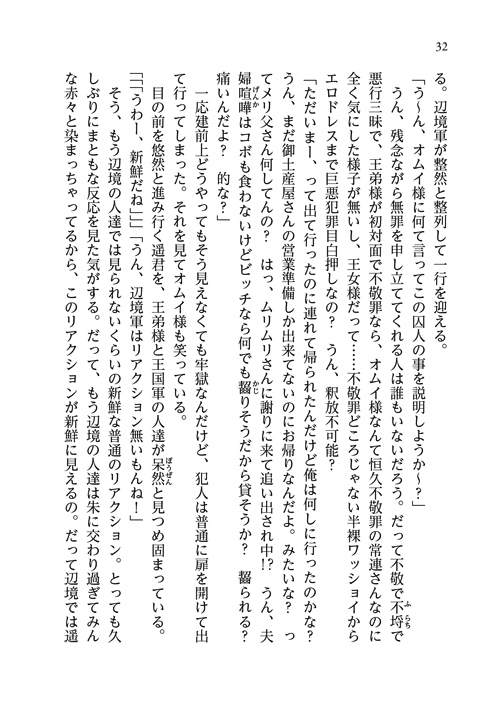 32
る。辺境軍が整然と整列して一行を迎える。
「う～ん、オムイ様に何て言ってこの囚人の事を説明しようか～?」
うん、残念ながら無罪を申し立ててくれる人は誰もいないだろう。だって不敬で不埒で
悪行三昧で、王弟様が初対面で不敬罪なら、オムイ様なんて恒久不敬罪の常連さんなのに
全く気にした様子が無いし、王女様だって……不敬罪どころじゃない半裸ワッショイから
エロドレスまで巨悪犯罪目白押しなの? うん、釈放不可能?
「ただいまー、って出て行ったのに連れて帰られたんだけど俺は何しに行ったのかな?
うん、まだ御土産屋さんの営業準備しか出来てないのにお帰りなんだよ。みたいな? っ
てメリ父さん何してんの? はっ、ムリムリさんに謝りに来て追い出され中!? うん、夫
婦喧嘩はコボも食わないけどビッチなら何でも齧りそうだから貸そうか? 齧られる?
痛いんだよ? 的な?」
一応建前上どうやってもそう見えなくても牢獄なんだけど、犯人は普通に扉を開けて出
て行ってしまった。それを見てオムイ様も笑っている。
目の前を悠然と進み行く遥君を、王弟様と王国軍の人達が呆然と見つめ固まっている。
「「「うわー、新鮮だね」」」「うん、辺境軍はリアクション無いもんね!」
そう、もう辺境の人達では見られないくらいの新鮮な普通のリアクション。とっても久
しぶりにまともな反応を見た気がする。だって、もう辺境の人達は朱に交わり過ぎてみん
な赤々と染まっちゃってるから、このリアクションが新鮮に見えるの。だって辺境では遥